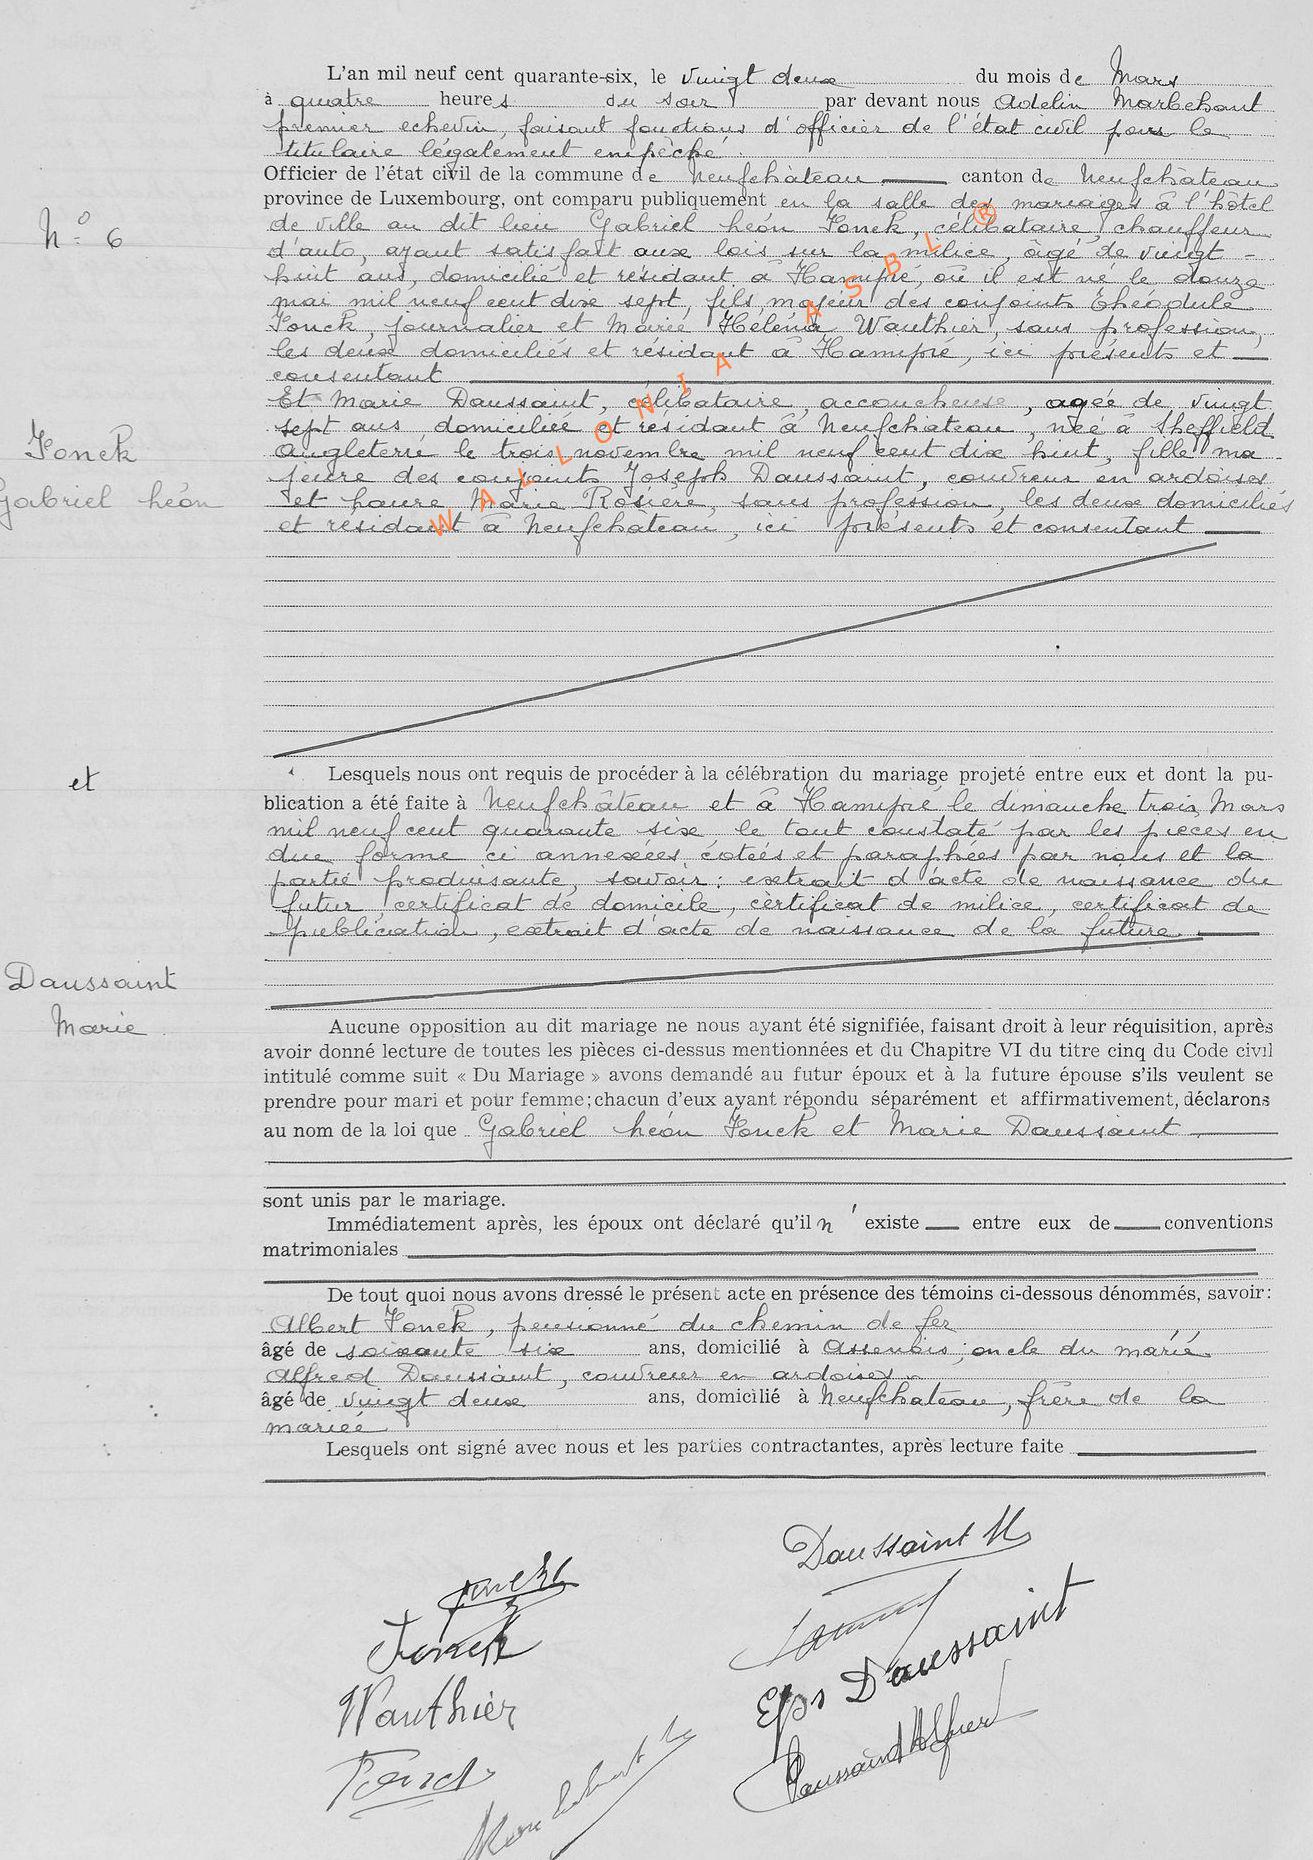 L'an mil neuf cent quarante-six, le vingt deux du mois de Mars
à quatre heures du soir par devant nous Adelin Marbehant
premier echevin, faisant fonctions d'officier de l'état civil pour le
titulaire légalement empêché
Officier de l'état civil de la commune de Neufchâteau canton de Neufchâteau
province de Luxembourg, ont comparu publiquement en la salle des mariages à l'hôtel
N° 6
de ville au dit lieu Gabriel Léon Fonck, célibataire, chauffeur
d'auto, ayant satisfait aux lois sur la milice, âgé de vingt -
huit ans, domicilié et résidant à Hamipré, où il est né le douze
mai mil neuf cent dix sept, fils majeur des conjoints Théodule
Fonck, journalier et Marie Héléna Wauthier, sans profession,
les deux domiciliés et résidant à Hamipré, ici présents et
consentant
Et Marie Daussaint, célibataire, accoucheuse, agée de vingt
sept ans domiciliée et résidant à Neufchateau, née à Sheffield
Fonck
Gabriel Léon
Angleterre le trois novembre mil neuf cent dix huit, fille ma -
jeure des conjoints Joseph Daussaint, couvreur en ardoises
et Laure Marie Rosière, sans profession, les deux domiciliés
et résidant à Neufchateau, ici présents et consentant
WALLONIA ASBL ®
et
Lesquels nous ont requis de procéder à la célébration du mariage projeté entre eux et dont la pu-
blication a été faite à Neufchâteau et à Hamipré le dimanche trois Mars
mil neuf cent quarante six le tout constaté par les pièces en
due forme ci annexées cotées et paraphées par nous et la
partie produisante, savoir: extrait d'acte de naissance du
futur, certificat de domicile, certificat de milice, certificat de
publication, extrait d'acte de naissance de la future
Daussaint
Marie
Aucune opposition au dit mariage ne nous ayant été signifiée, faisant droit à leur réquisition, après
avoir donné lecture de toutes les pièces ci-dessus mentionnées et du Chapitre VI du titre cinq du Code civil
intitulé comme suit « Du Mariage » avons demandé au futur époux et à la future épouse s'ils veulent se
prendre pour mari et pour femme; chacun d'eux ayant répondu séparément et affirmativement, déclarons
au nom de la loi que Gabriel Léon Fonck et Marie Daussaint
sont unis par le mariage.
Immédiatement après, les époux ont déclaré qu'il n'existe entre eux de conventions
matrimoniales
De tout quoi nous avons dressé le présent acte en présence des témoins ci-dessous dénommés, savoir:
Albert Fonck, pensionné du chemin de fer
âgé de soixante six ans, domicilié à Assenois, oncle du marié
Alfred Daussaint, couvreur en ardoises
âgé de vingt deux ans, domicilié à Neufchateau, frère de la
mariée
Lesquels ont signé avec nous et les parties contractantes, après lecture faite
Daussaint M
Fonck
Fonck
Eps Daussaint
Wauthier
Daussaint Alfred
Fonck